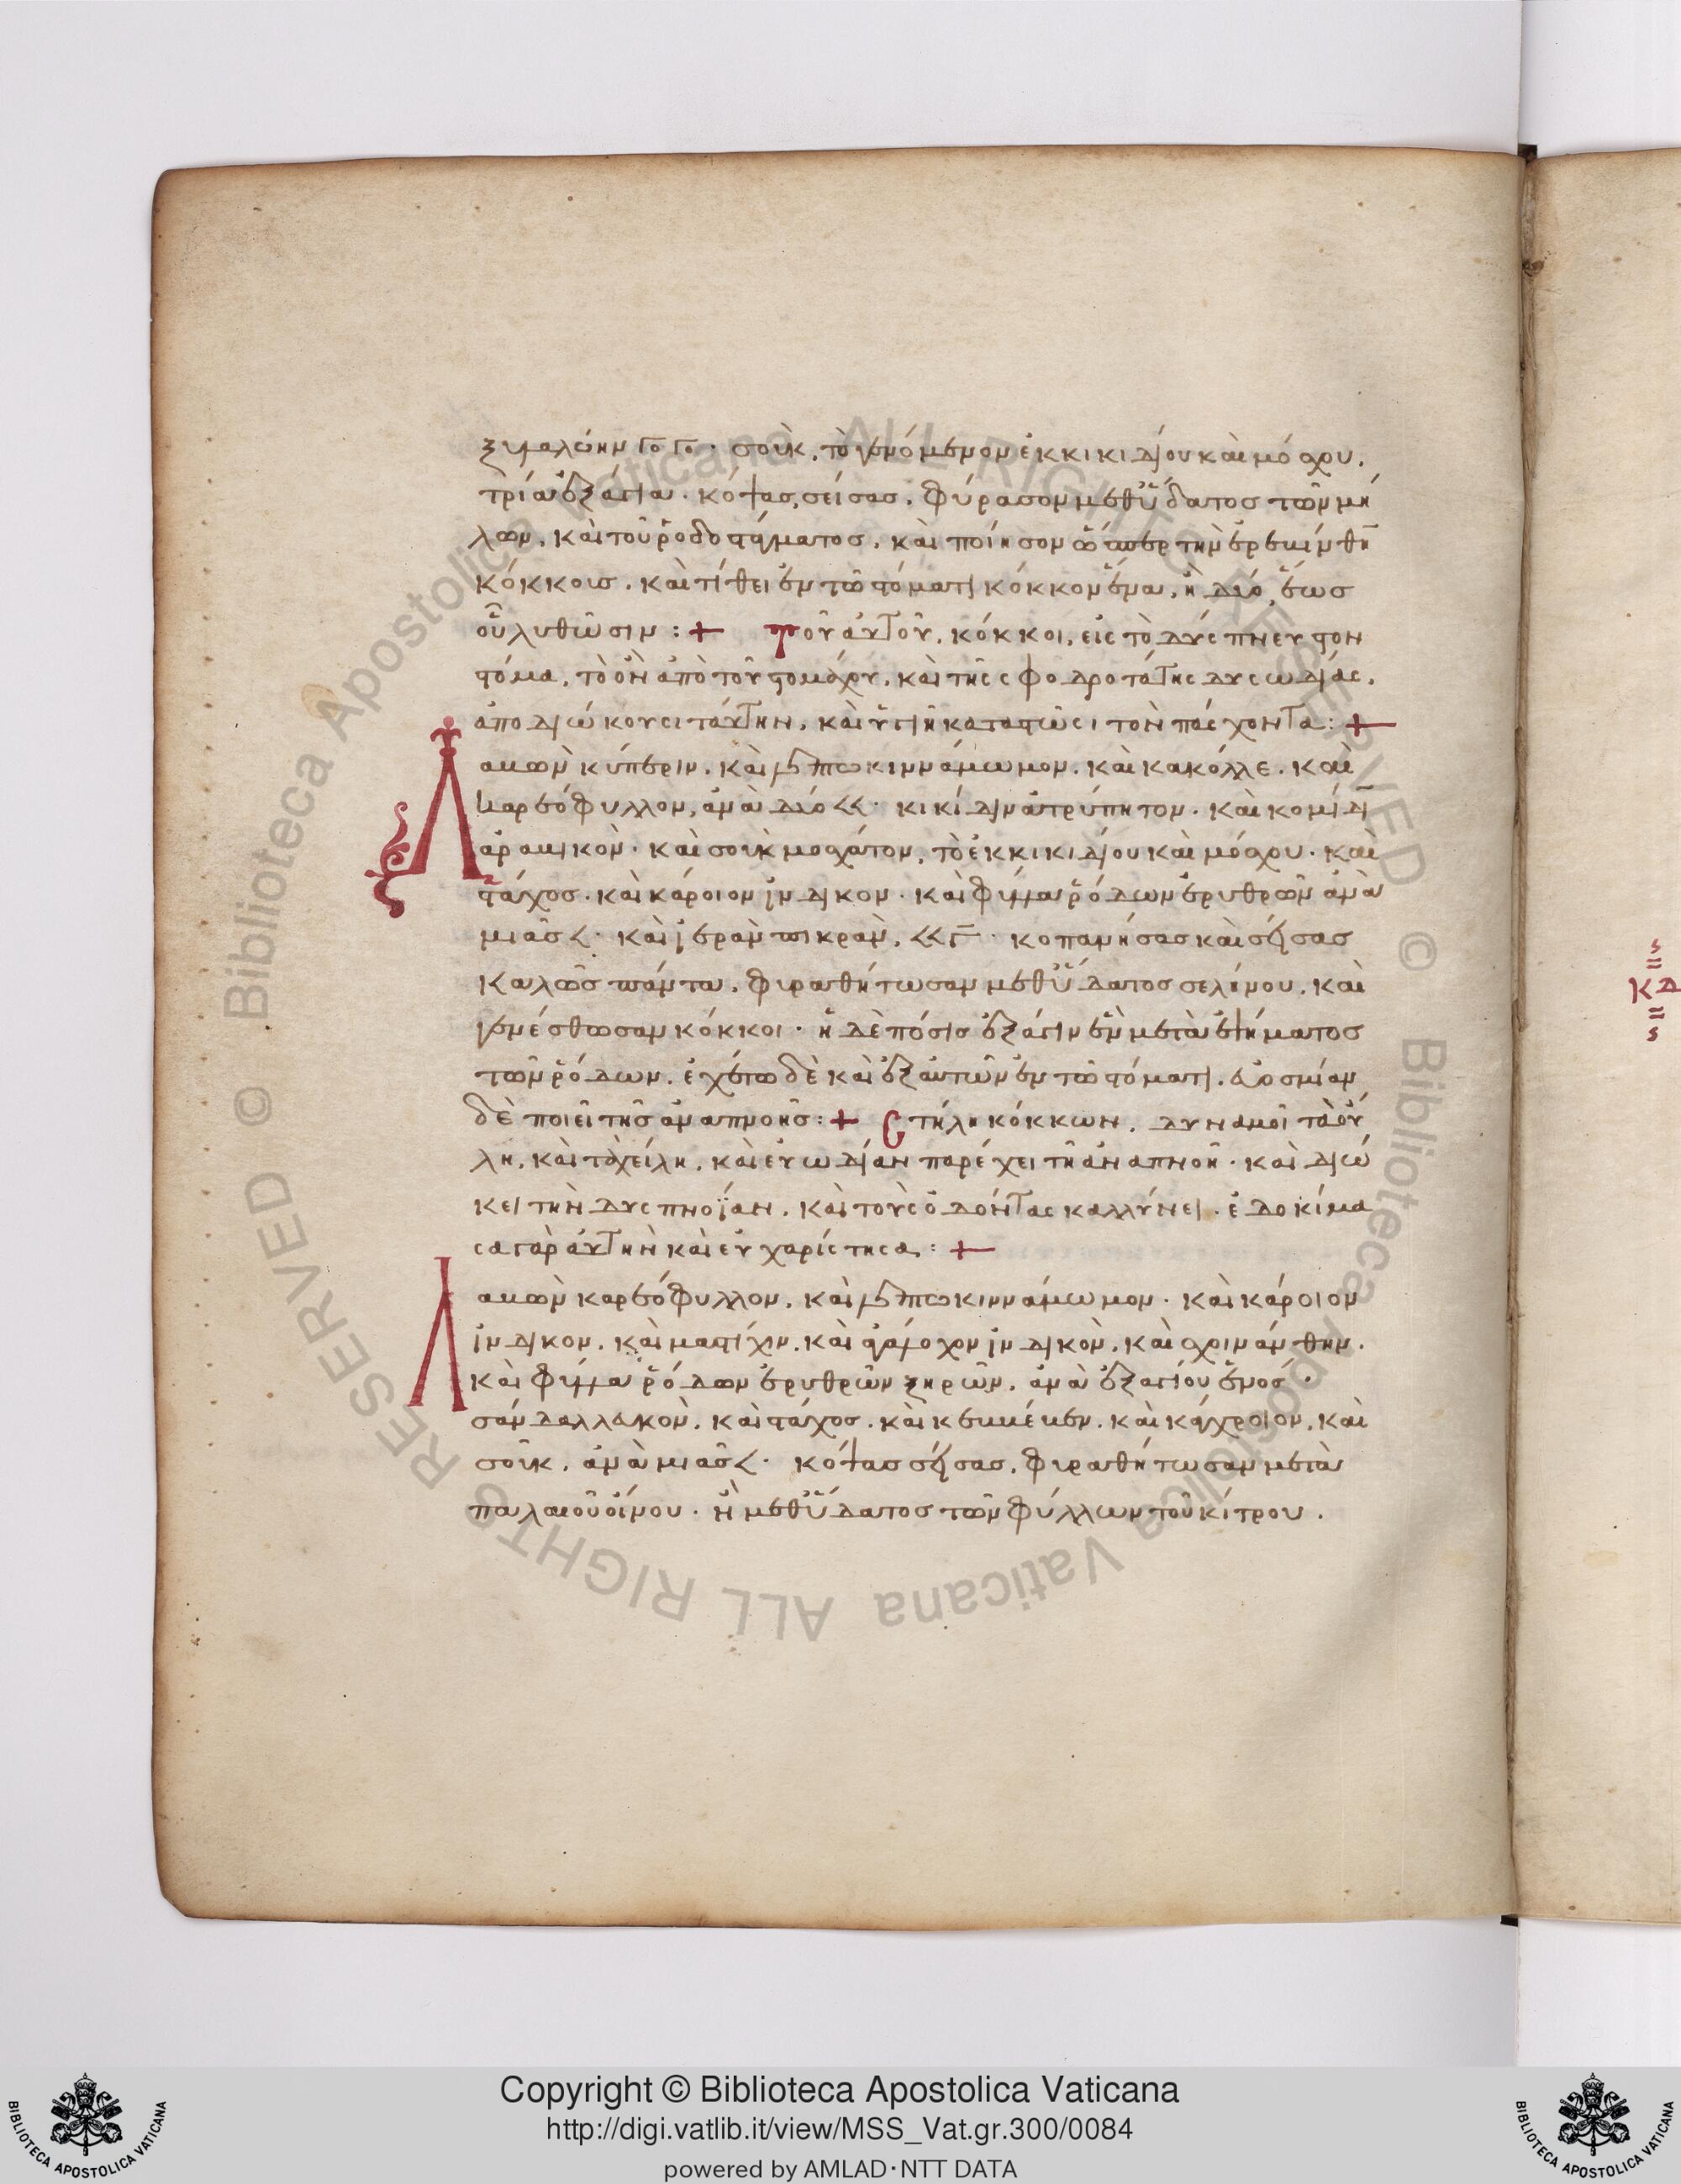 ξυλαλόην γο γο. σοὺκ, τὸ γενόμενον ἐκ κικιδίου καὶ μόσχου,
τρία ἑξάγια. κόψας, σείσας, φύρασον μεθ ὕδατος τῶν μή
λων, καὶ τοῦ ῥοδοστάγματος, καὶ ποίησον ὥσπερ τὴν ἐρεβίνθη
κόκκους. καὶ τίθει ἐν τῶ στόματι κόκκον ἕνα, ἢ δύο, ἕως
οὗ λυθῶσιν: + τοῦ αὐτοῦ, κόκκοι, εἰς τὸ δύσπνευστον
στόμα, τὸ ὂν ἀπὸ τοῦ στομάχου, καὶ τῆς σφοδροτάτης δυσωδίας,
ἀποδιώκουσι ταύτην, καὶ ὑγιῆ καταστῶσι τὸν πάσχοντα: +
Λαβὼν κύπεριν, καὶ κιννάμωμον, καὶ κακόλλε, καὶ
καρεόφυλλον, ἀνὰ δύο <<. κικίδιν ἀτρύπητον. καὶ κομίδι
ἀραβικὸν. καὶ σοὺκ μοσχάτον, τὸ ἐκ κικιδίου καὶ μόσχου. καὶ
στάχος. καὶ κάροιον ἰνδικον. καὶ φύλλα ῥόδων ἐρυθρῶν ἀνὰ
μιᾶς <. καὶ ἱερὰν πικρὰν, << γ. κοπανήσας καὶ σήσας
καλῶς πάντα, φυραθήτωσαν μεθ ὕδατος σελίνου, καὶ
γενέσθωσαν κόκκοι. ἡ δὲ πόσις ἑξάγιν ἓν μετὰ ἑψήματος
τῶν ῥόδων. ἐχέτω δὲ καὶ ἐξ αὐτῶν ἐν τῶ στόματι. εὐοσμίαν
δὲ ποιεῖ τῆς ἀναπνοῆς: + Στήλη κόκκων, δυναμοῖ τὰ οὔ
λη, καὶ τὰ χείλη, καὶ εὐωδίαν παρέχει τῆ ἀναπνοῆ. καὶ διώ
κει τὴν δυσπνοΐαν, καὶ τοὺς ὀδόντας καλλύνει. ἐδοκίμα
σα γὰρ αὐτὴν καὶ εὐχαρίστησα: +
Λαβὼν καρεόφυλλον, καὶ κιννάμωμον. καὶ κάροιον
ἰνδικον, καὶ μαστίχιν, καὶ ἰνδικὸν, καὶ σχινάνθην,
καὶ φύλλα ῥόδων ἐρυθρῶν ξηρῶν, ἀνὰ ἑξαγίου ἑνὸς.
σάνδαλ λευκὸν, καὶ στάχος, καὶ κεμπέμπεν, καὶ κάχροιον, καὶ
σοῦκ, ἀνὰ μιᾶς <. κόψας σήσας, φυραθήτωσαν μετὰ
παλαιοῦ οἴνου. ἢ μεθ ὕδατος τῶν φύλλων τοῦ κίτρου.
κδ
Copyright © Biblioteca Apostolica Vaticana
http://digi.vatlib.it/view/MSS_Vat.gr.300/0084
powered by AMLAD·NTT DATA